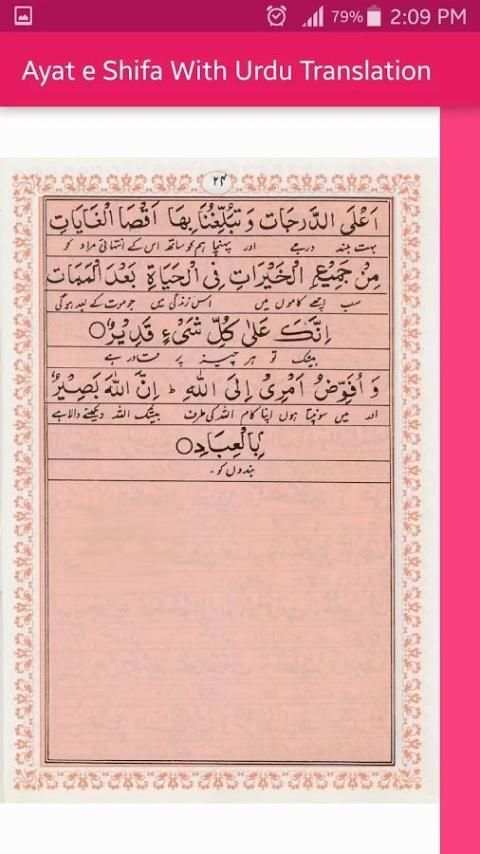 79% 2:09 PM
Ayat e Shifa With Urdu Translation
۲۴
اَعْلَى الدَّرَجَاتِ وَ تُبَلِّغُنَا بِهَا اَقْصَا الْغَايَاتِ
بہت بلند درجے اور پہنچا ہم کو ساتھ اس کے انتہائی مراد کو
مِنْ جَمِيْعِ الْخَيْرَاتِ فِى الْحَيَاةِ بَعْدَ الْمَمَاتِ
سب اچھے کاموں میں اس زندگی میں جو موت کے بعد ہوگی
اِنَّكَ عَلٰى كُلِّ شَىْءٍ قَدِيْرٌ○
بیشک تو ہر چیز پر قادر ہے
وَ اُفَوِّضُ اَمْرِىْ اِلَى اللهِ ؕ اِنَّ اللهَ بَصِيْرٌۢ
اور میں سونپتا ہوں اپنا کام اللہ کی طرف بیشک اللہ دیکھنے والا ہے
بِالْعِبَادِ○
بندوں کو۔